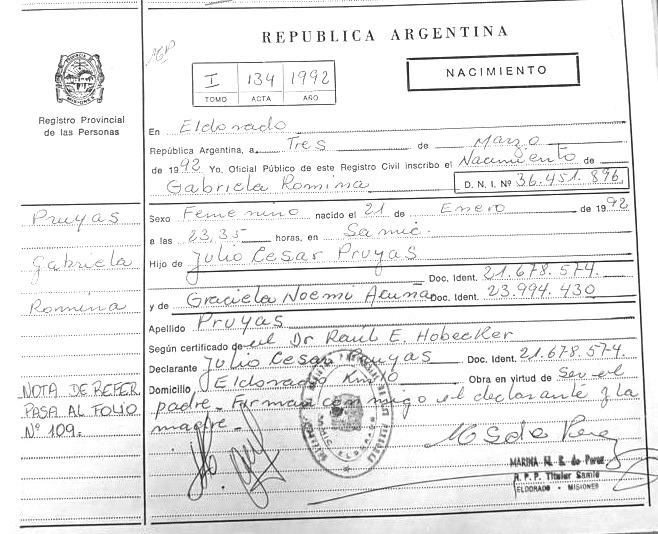 REPUBLICA ARGENTINA
I 134 1992
TOMO ACTA AÑO
NACIMIENTO
MISIONES
Registro Provincial
de las Personas
En Eldorado
República Argentina, a Tres de Marzo
de 1992 Yo, Oficial Público de este Registro Civil inscribo el Nacimiento de
Gabriela Romina D. N. I. Nº 36.451.896
Pruyas
Gabriela
Romina
NOTA DE REFER
PASA AL FOLIO
Nº 109.
Sexo Femenino nacido el 21 de Enero de 1992
a las 23,35 horas, en Samic.
Hijo de Julio Cesar Pruyas
Doc. Ident. 21.678.574.
y de Graciela Noemi Acuña Doc. Ident. 23.994.430
Apellido Pruyas
Según certificado de el Dr Raúl E. Hobecker
Declarante Julio Cesar Pruyas Doc. Ident. 21.678.574.
Domicilio Eldorado Km 10 Obra en virtud de Ser el
padre. Firman conmigo el declarante y la
madre.
MARINA N. B. de Perez
A. P. P. Titular Samic
ELDORADO - MISIONES